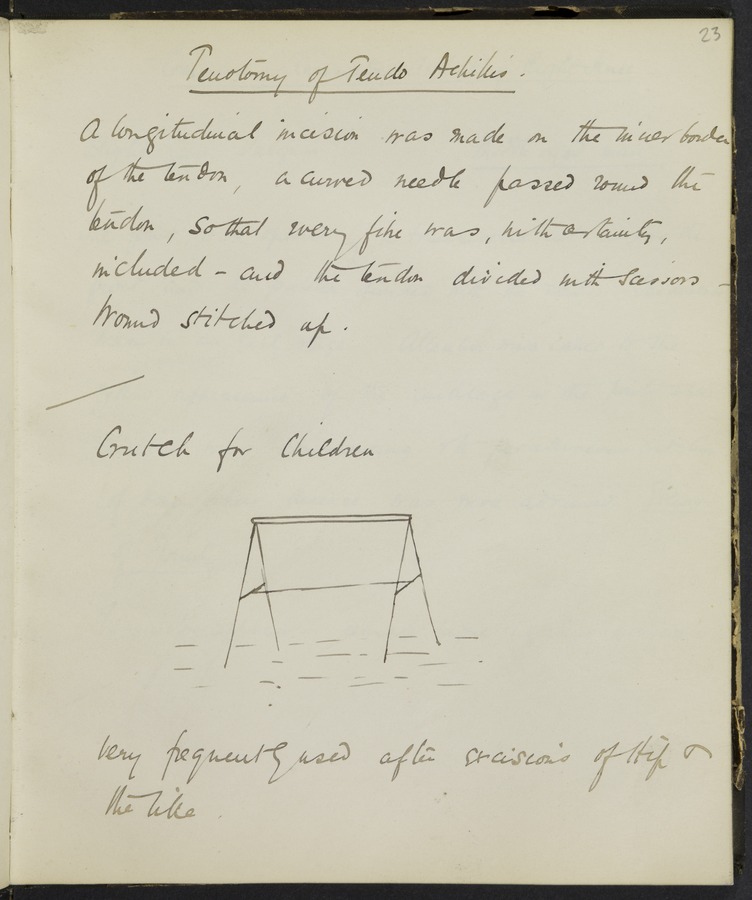 23
Tenotomy of Tendo Achilis.
A longitudinal incision was made on the inner border
of the tendon, a curved needle passed round the
tendon, so that every fibre was, with certainty,
included - and the tendon divided with scissors -
Wound stitched up.
Crutch for Children
Very frequently used after excisions of Hip &
the like